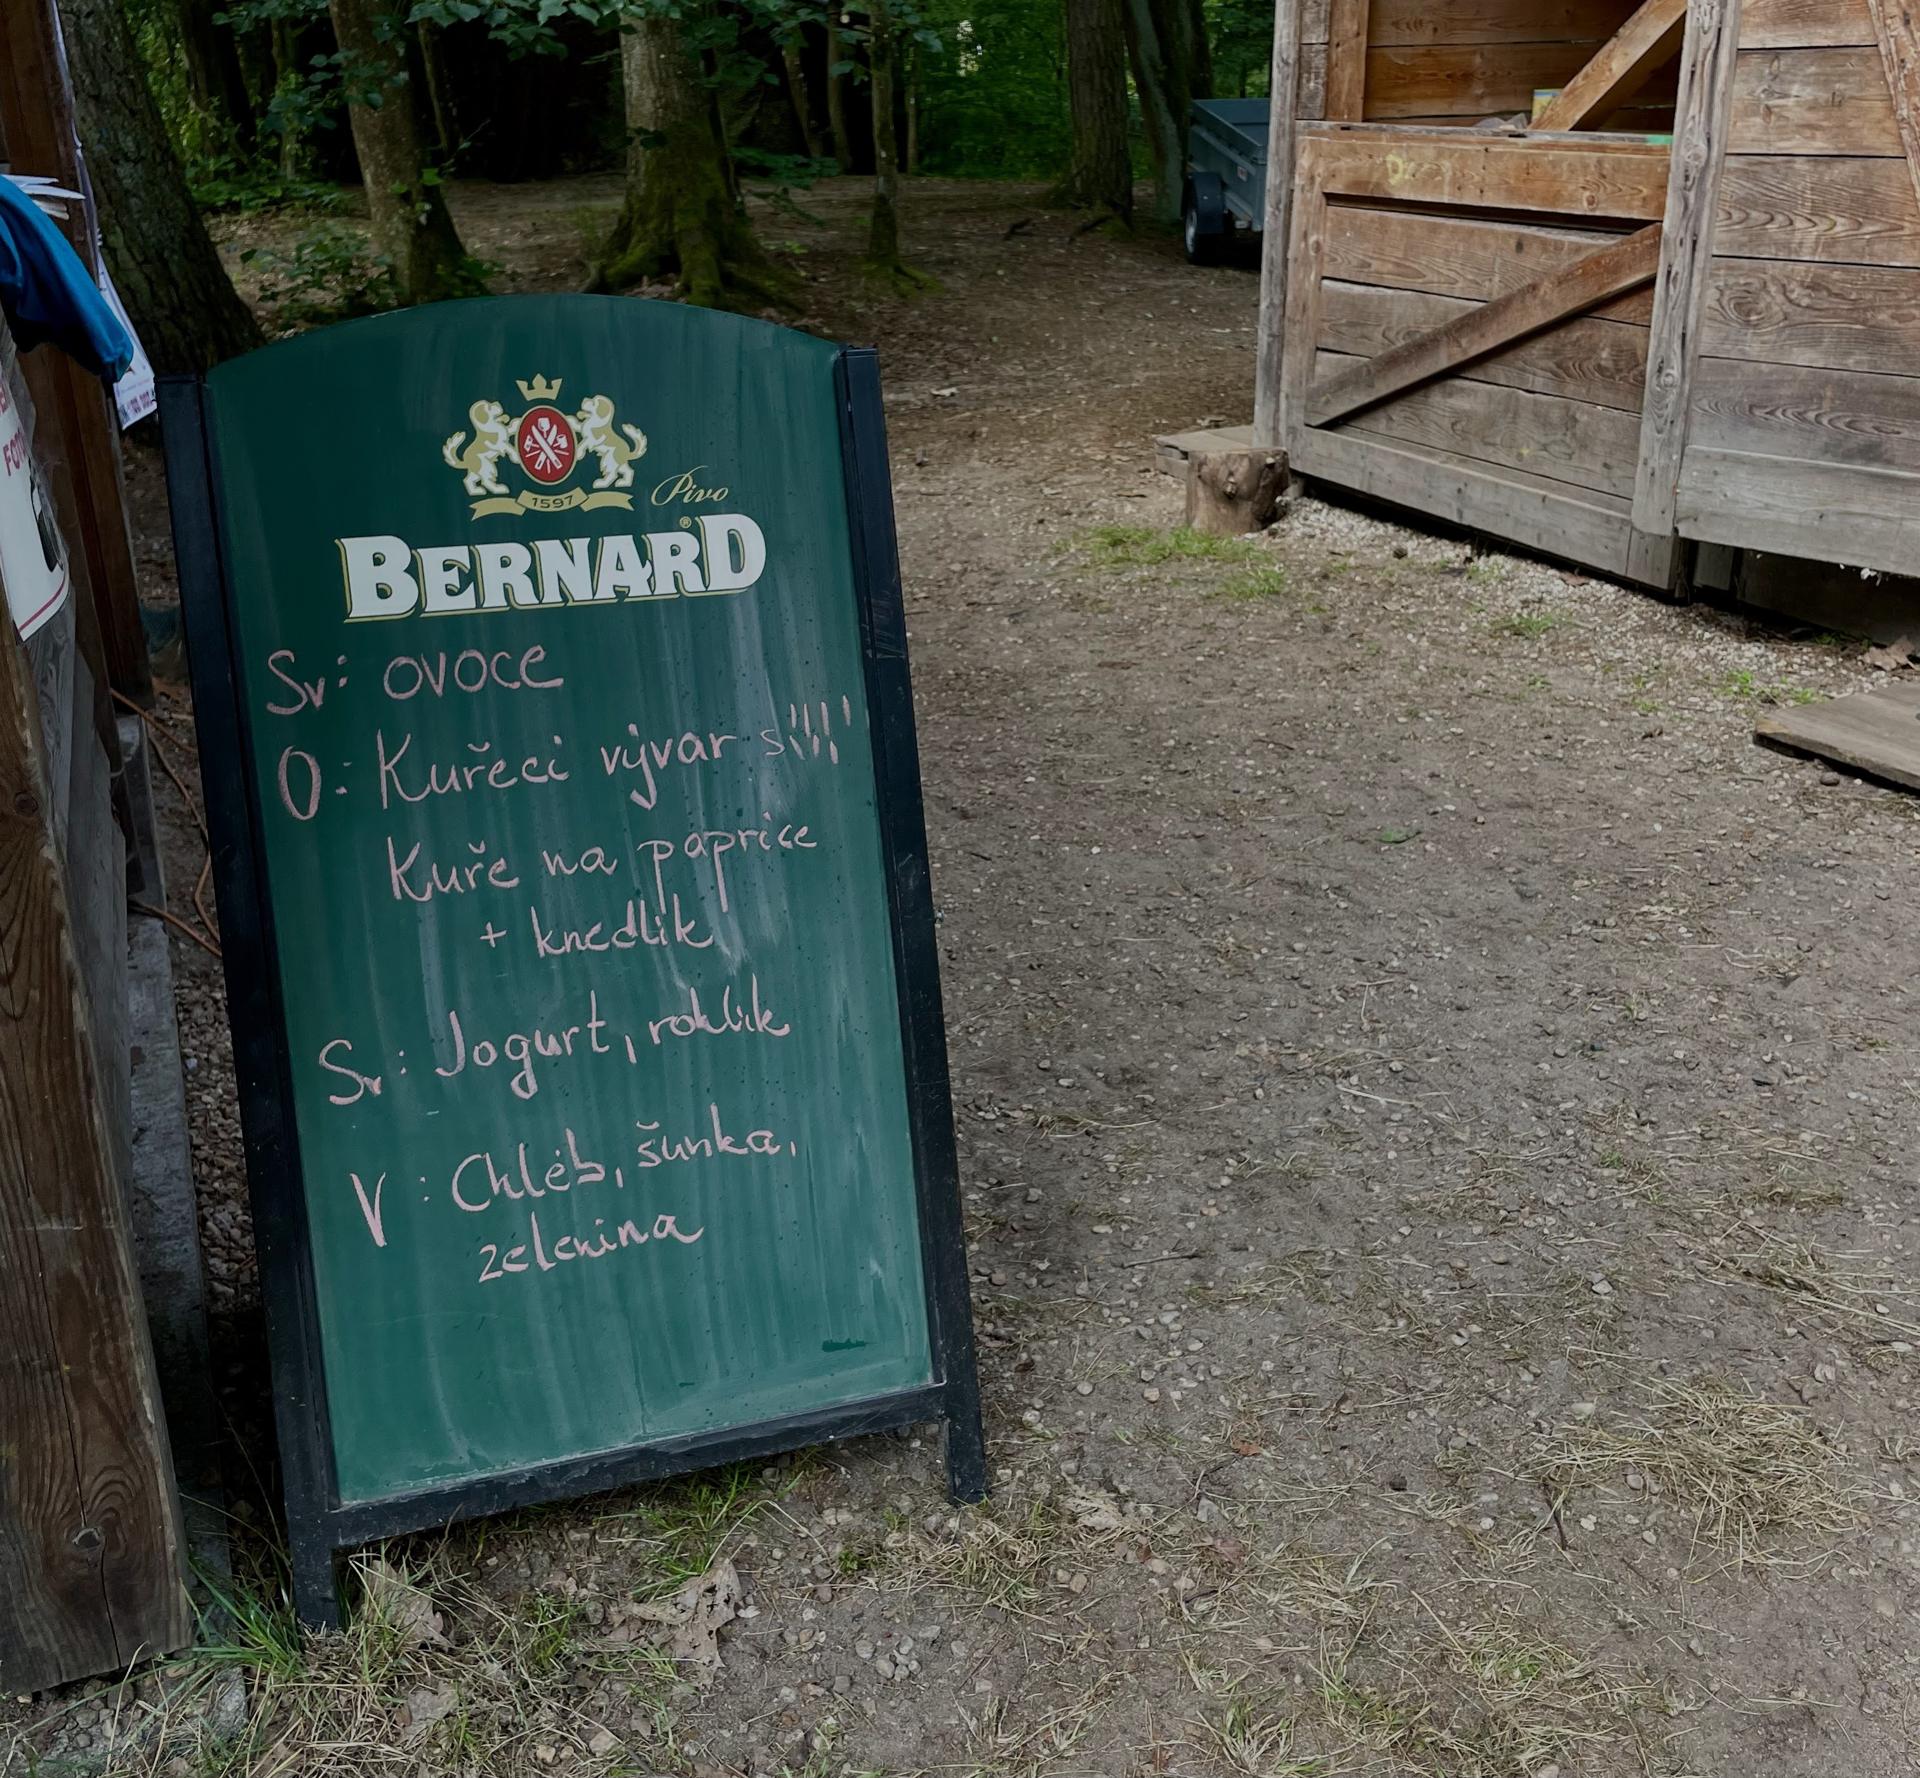 1597
Pivo
BERNARD®
Sv: ovoce
O: Kuřecí vývar s
Kuře na paprice
+ knedlík
Sv: Jogurt, rohlík
V: Chléb, šunka,
zelenina